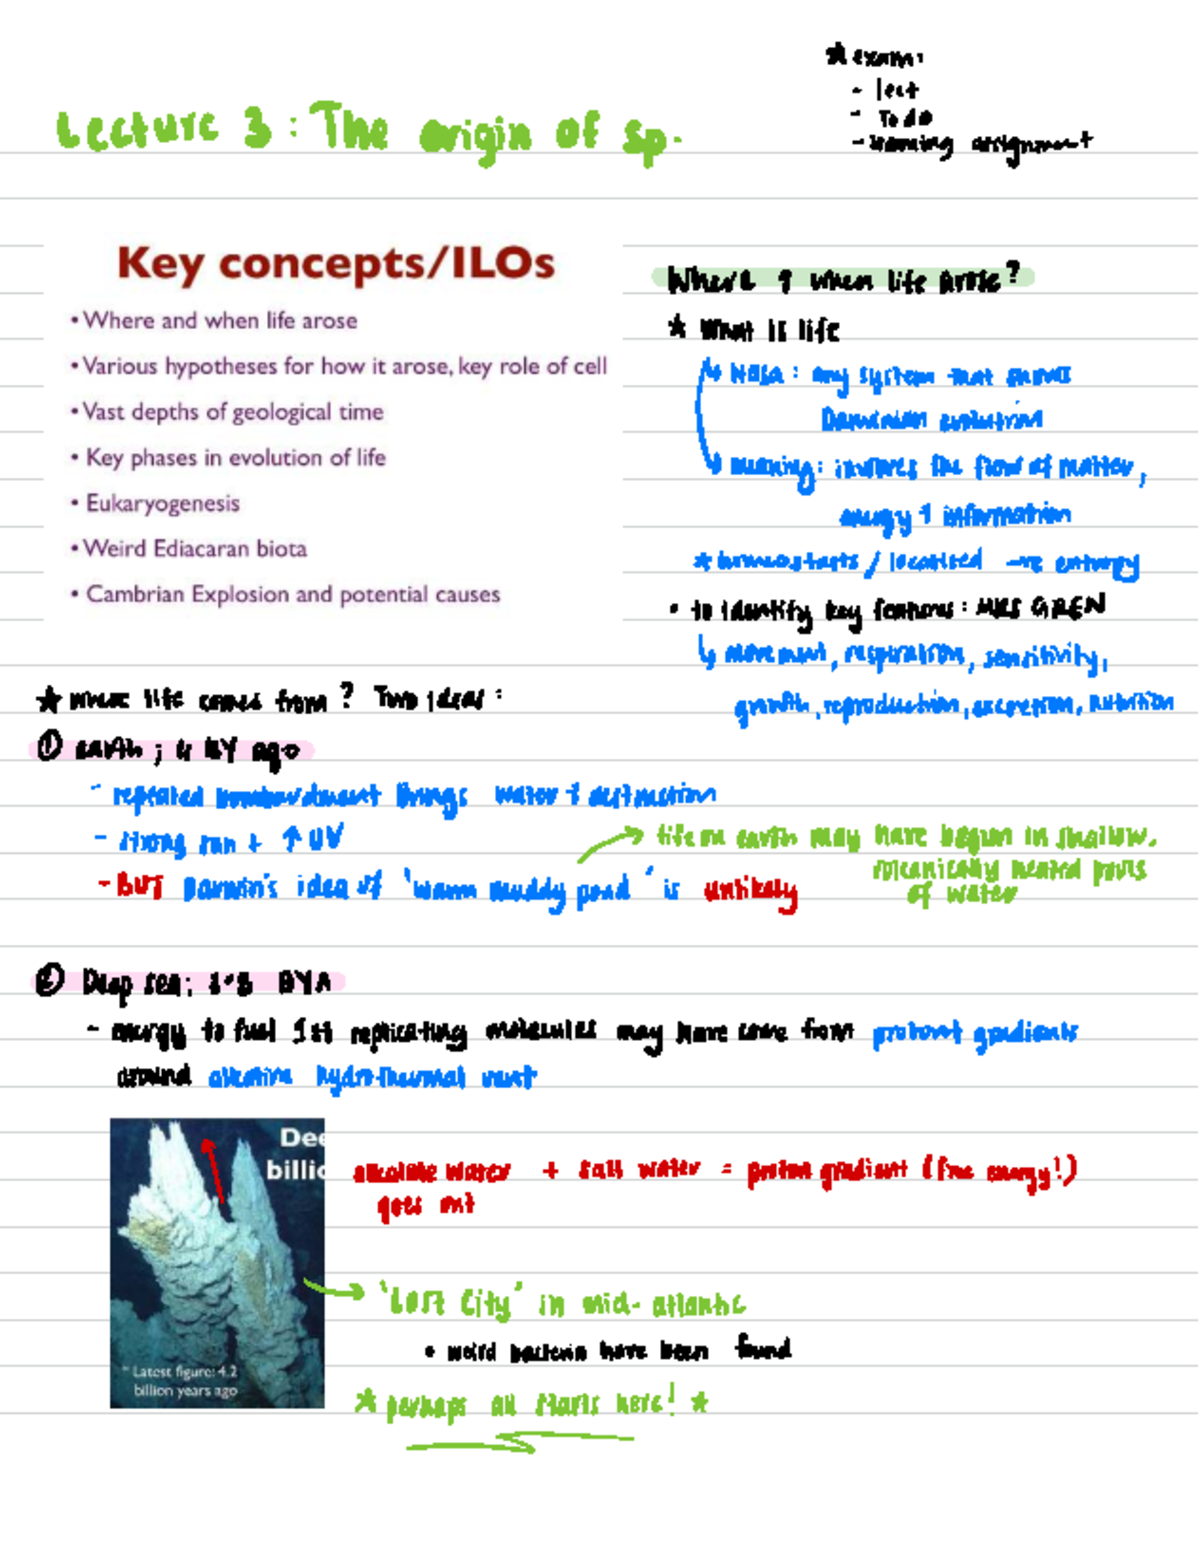 ★ exam:
- lect
- To do
- learning assignment
Lecture 3 : The origin of sp.
Key concepts/ILOs
• Where and when life arose
• Various hypotheses for how it arose, key role of cell
• Vast depths of geological time
• Key phases in evolution of life
• Eukaryogenesis
• Weird Ediacaran biota
• Cambrian Explosion and potential causes
Where & when life arose?
★ What is life
↳ NASA : any system that shows
Darwinian evolution
↳ meaning: involves the flow of matter,
energy & information
★ homeostasis / localised -ve entropy
• to identify key features: MRS GREN
↳ movement, respiration, sensitivity,
growth, reproduction, excretion, nutrition
★ where life comes from? Two ideas:
① earth; 4 BY ago
- repeated bombardment brings water + destruction
- strong sun + ↑ UV
→ life on earth may have begun in shallow,
volcanically heated pools
of water
- BUT Darwin's idea of 'warm muddy pond' is unlikely
② Deep sea; BYA
- energy to fuel 1st replicating molecules may have come from proton gradients
around alkaline hydrothermal vent
Dee
billio
alkaline water + salt water = proton gradient (free energy!)
goes out
→ 'Lost City' in mid-atlantic
• weird bacteria have been found
* Latest figure: 4.2
billion years ago
★ perhaps all starts here! ★